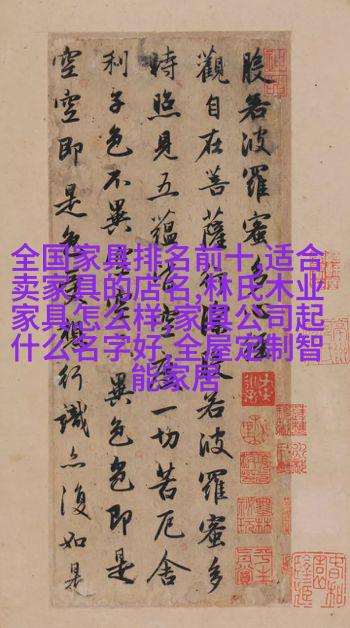 般若波羅蜜多心經
觀自在菩薩行深般若波羅蜜多
時照見五蘊皆空度一切苦厄舍
利子色不異空空不異色色即是
空空即是色受想行識亦復如是
全国家具排名前十,适合
卖家具的店名,林氏木业
家具怎么样,家具公司起
什么名字好,全屋定制智
能家居